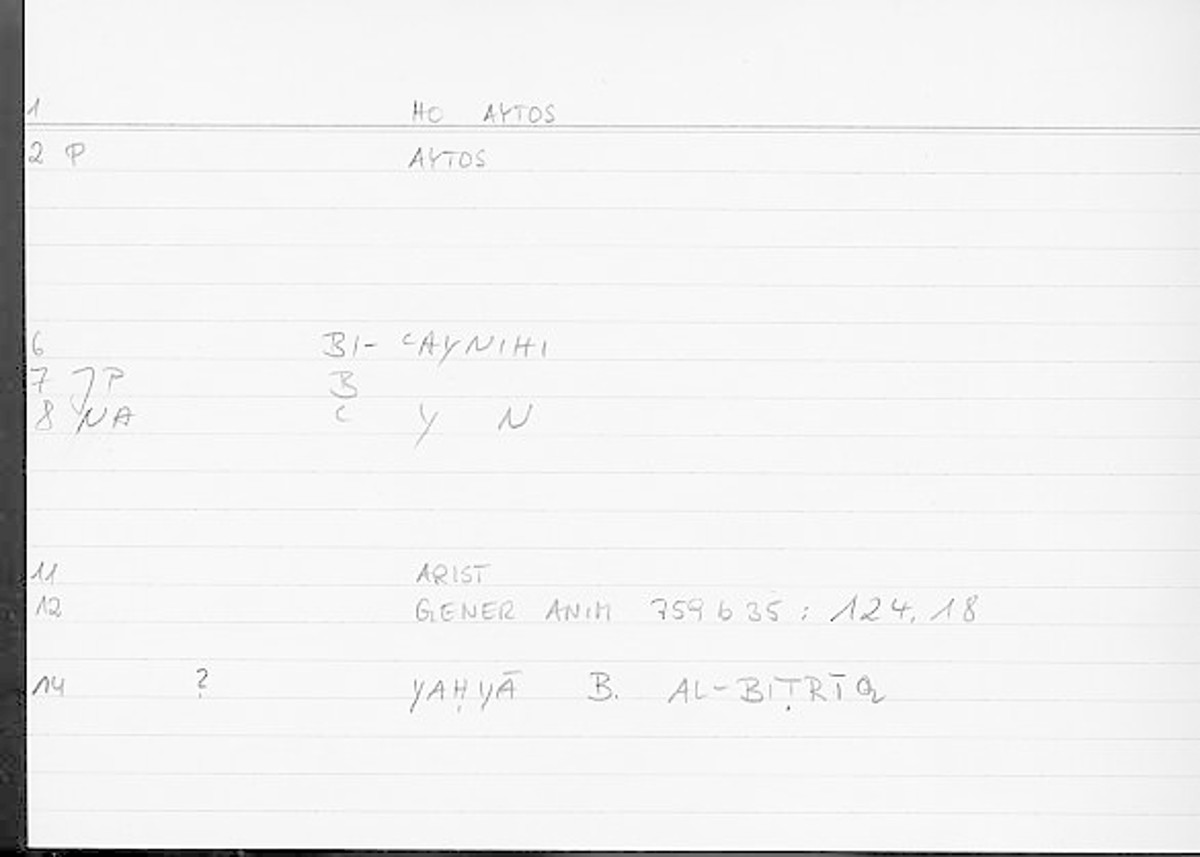 1 HO AYTOS
2 P AYTOS
6 BI- ʿAYNIHI
7 P B
8 NA ʿ Y N
11 ARIST
12 GENER ANIM 759 b 35 : 124, 18
14 ? YAḤYĀ B. AL-BIṬRĪQ